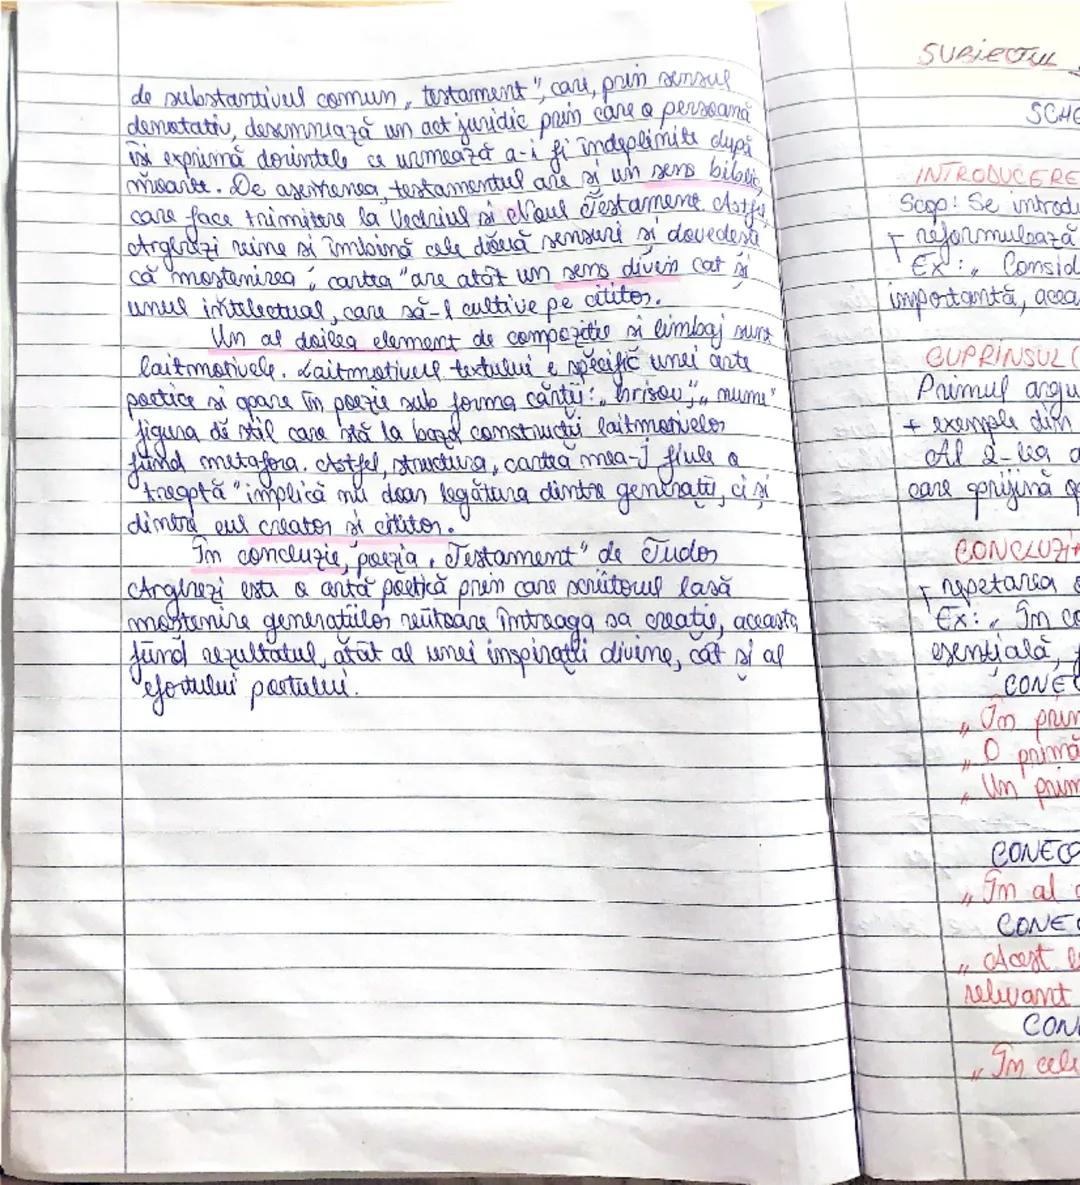 de substantivul comun „testament", care, prin sensul
denotativ, desemnează un act juridic prin care o persoană
își exprimă dorințele ce urmează a-i fi îndeplinite după
moarte. De asemenea, testamentul are și un sens biblic,
care face trimitere la Vechiul și Noul Testament. Astfel,
Arghezi reine si îmbină cele două sensuri și dovedește
că moștenirea, „cartea" are atât un sens divin cat și
unul intelectual, care să-l cultive pe cititor.
Un al doilea element de compoziție si limbaj sunt
laitmotivele. Laitmotivul textului e specific unei arte
poetice si apare în poezie sub forma cărții: „hrisov", „nume"
figura de stil care stă la baza constructii laitmotivelor
fiind metafora. Astfel, structura „cartea mea-I fiule o
treaptă" implică nu doar legătura dintre generații, ci și
dintre eul creator și cititor.
În concluzie, poezia „Testament" de Tudor
Arghezi este o artă poetică prin care scriitorul lasă
moștenire generațiilor viitoare întreaga sa creație, aceasta
fiind rezultatul, atât al unei inspirații divine, cât și al
efortului poetului.
SUBIECTUL
SCHE
INTRODUCERE
Scop: Se introdu
+ reformulează
Ex: „ Consid
importantă, aceas
CUPRINSUL (
Primul argu
+ exemple din
Al 2-lea a
care sprijină
CONCLUZI
+ repetarea
Ex: „ În co
esențială,
CONEC
„ În prim
„ O primă
„ Un prim
CONEC
„ În al
CONEC
„ Acest
relevant
CON
„ În cele